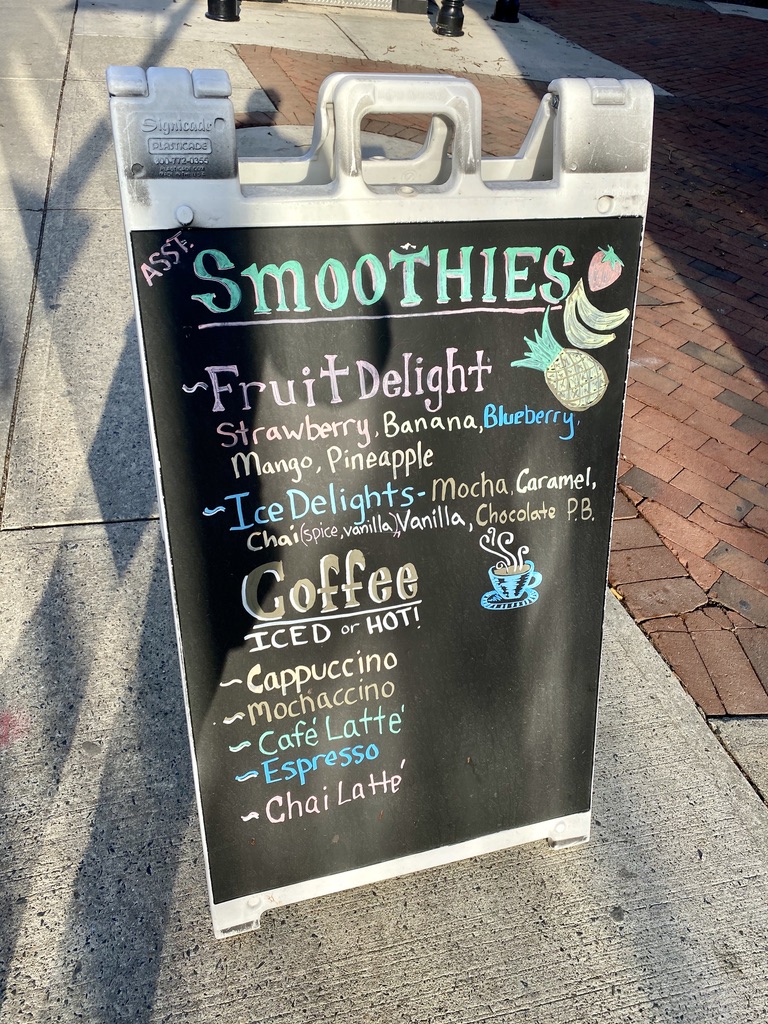 Signicade
PLASTICADE
800-772-0355
ASST.
SMOOTHIES
~Fruit Delight
Strawberry, Banana, Blueberry,
Mango, Pineapple
~Ice Delights - Mocha, Caramel,
Chai (spice, vanilla), Vanilla, Chocolate P.B.
Coffee
ICED or HOT!
~Cappuccino
~Mochaccino
~Café Latté
~Espresso
~Chai Latté